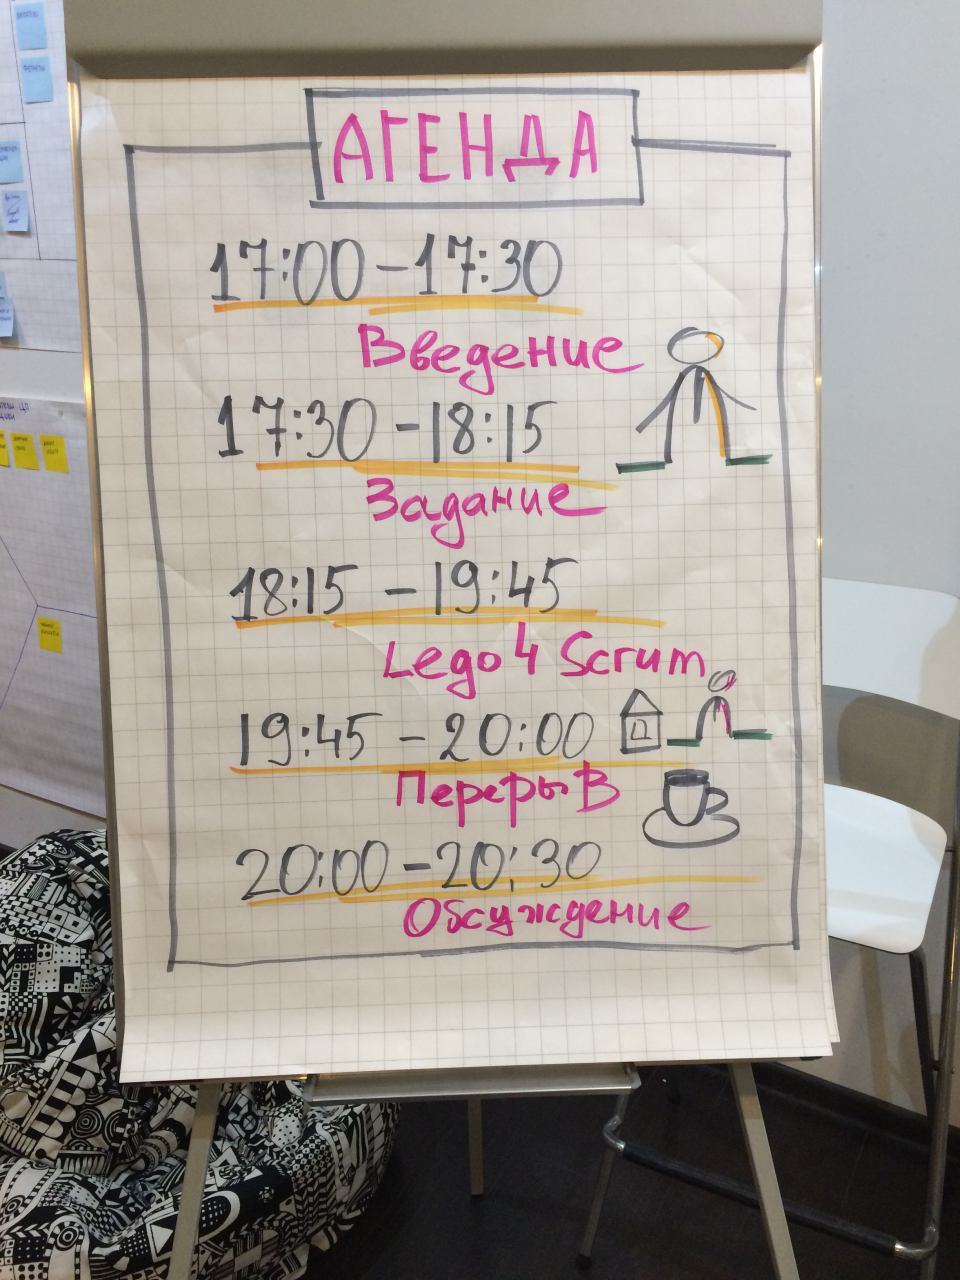 АГЕНДА
17:00 – 17:30
Введение
17:30 – 18:15
Задание
18:15 – 19:45
Lego 4 Scrum
19:45 – 20:00
Перерыв
20:00 – 20:30
Обсуждение